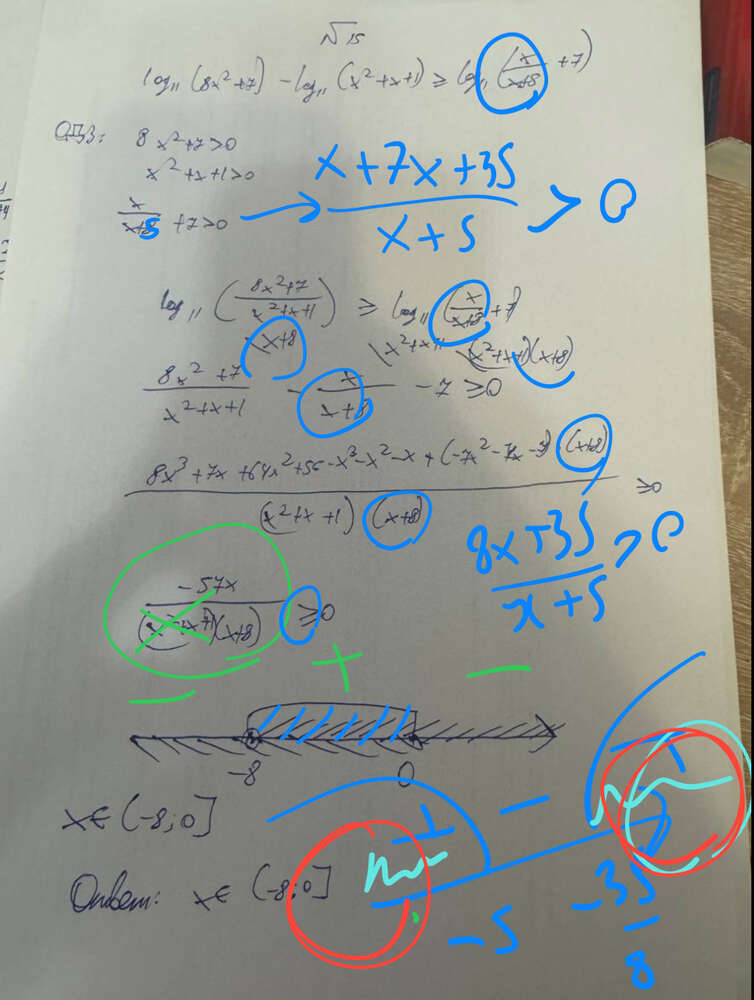 √15
log₁₁ (8x²+7) - log₁₁ (x²+x+1) ≥ log₁₁ (x/(x+8) + 7)
ОДЗ: 8x²+7>0
x²+x+1>0
x/(x+8) + 7>0 → (x+7x+35)/(x+5) > 0
log₁₁ ((8x²+7)/(x²+x+1)) ≥ log₁₁ (x/(x+8) + 7)
\x+8 \x²+x+1 \(x²+x+1)(x+8)
(8x²+7)/(x²+x+1) - x/(x+8) - 7 ≥0
(8x³+7x+64x²+56-x³-x²-x+(-7x²-7x-7)·(x+8))/((x²+x+1)(x+8)) ≥0
(8x+35)/(x+5) > 0
(-57x)/((x²+x+1)(x+8)) ≥0
- + -
-8 0
x∈(-8;0]
+ - +
-5 -35/8
Ответ: x∈(-8;0]